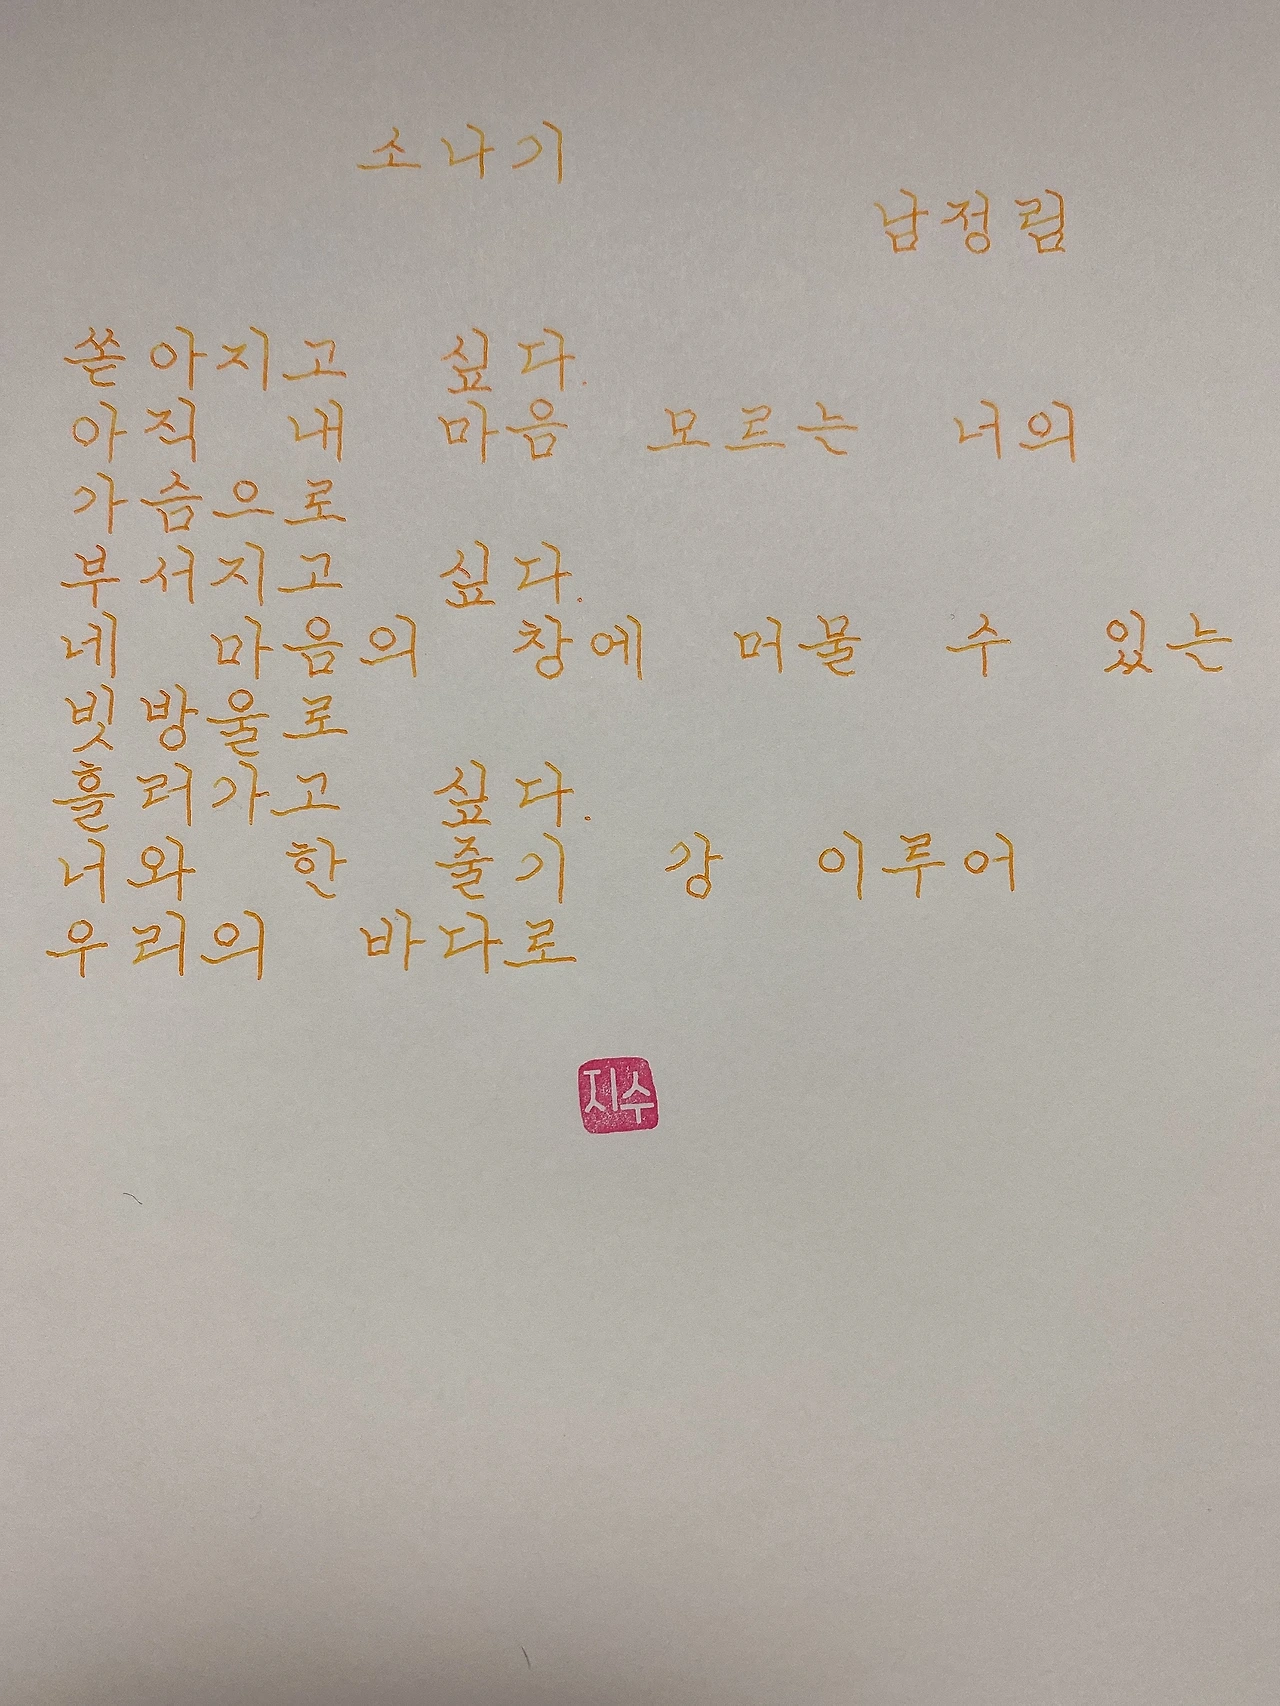 소나기
남정림
쏟아지고 싶다.
아직 내 마음 모르는 너의
가슴으로
부서지고 싶다.
네 마음의 창에 머물 수 있는
빗방울로
흘러가고 싶다.
너와 한 줄기 강 이루어
우리의 바다로
지수